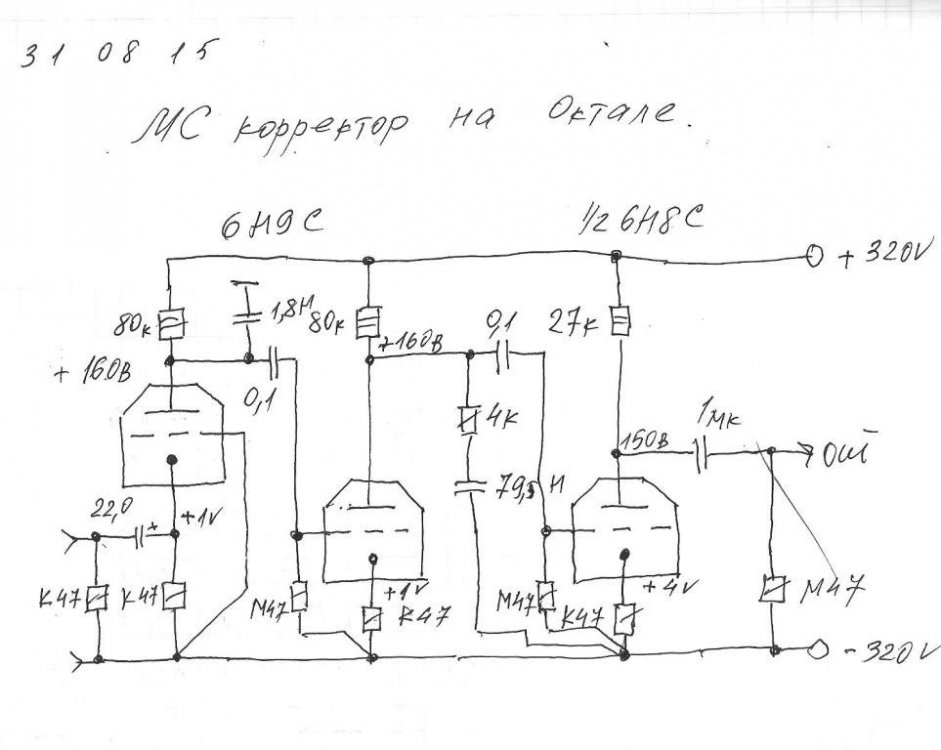 31 08 15
МС корректор на Октале.
6Н9С
1/2 6Н8С
+ 320V
80к
1,8Н
80к
0,1
27к
+ 160в
+160в
0,1
4к
150в
1мк
OUT
79,5Н
22,0
+
+1v
К47
К47
М47
+1v
К47
М47
К47
+4v
М47
- 320V